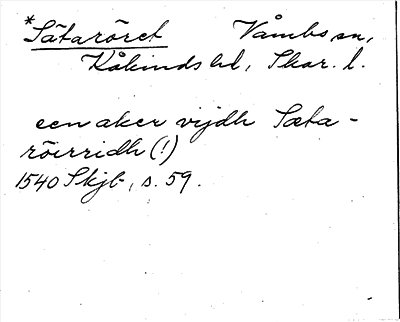 *Sätaröret Våmbs sn,
Kåkinds hd, Skar. l.
een aker vijdh Sæta-
röerridh (!)
1540 Skjb, s. 59.